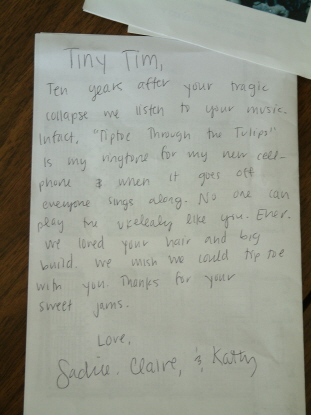 Tiny Tim,
Ten years after your tragic
collapse we listen to your music.
Infact, "Tiptoe Through the Tulips"
is my ringtone for my new cell-
phone & when it goes off
everyone sings along. No one can
play the ukelealy like you. Ever.
We loved your hair and big
build. We wish we could tip toe
with you. Thanks for your
sweet jams.
Love,
Sadie. Claire, & Katty